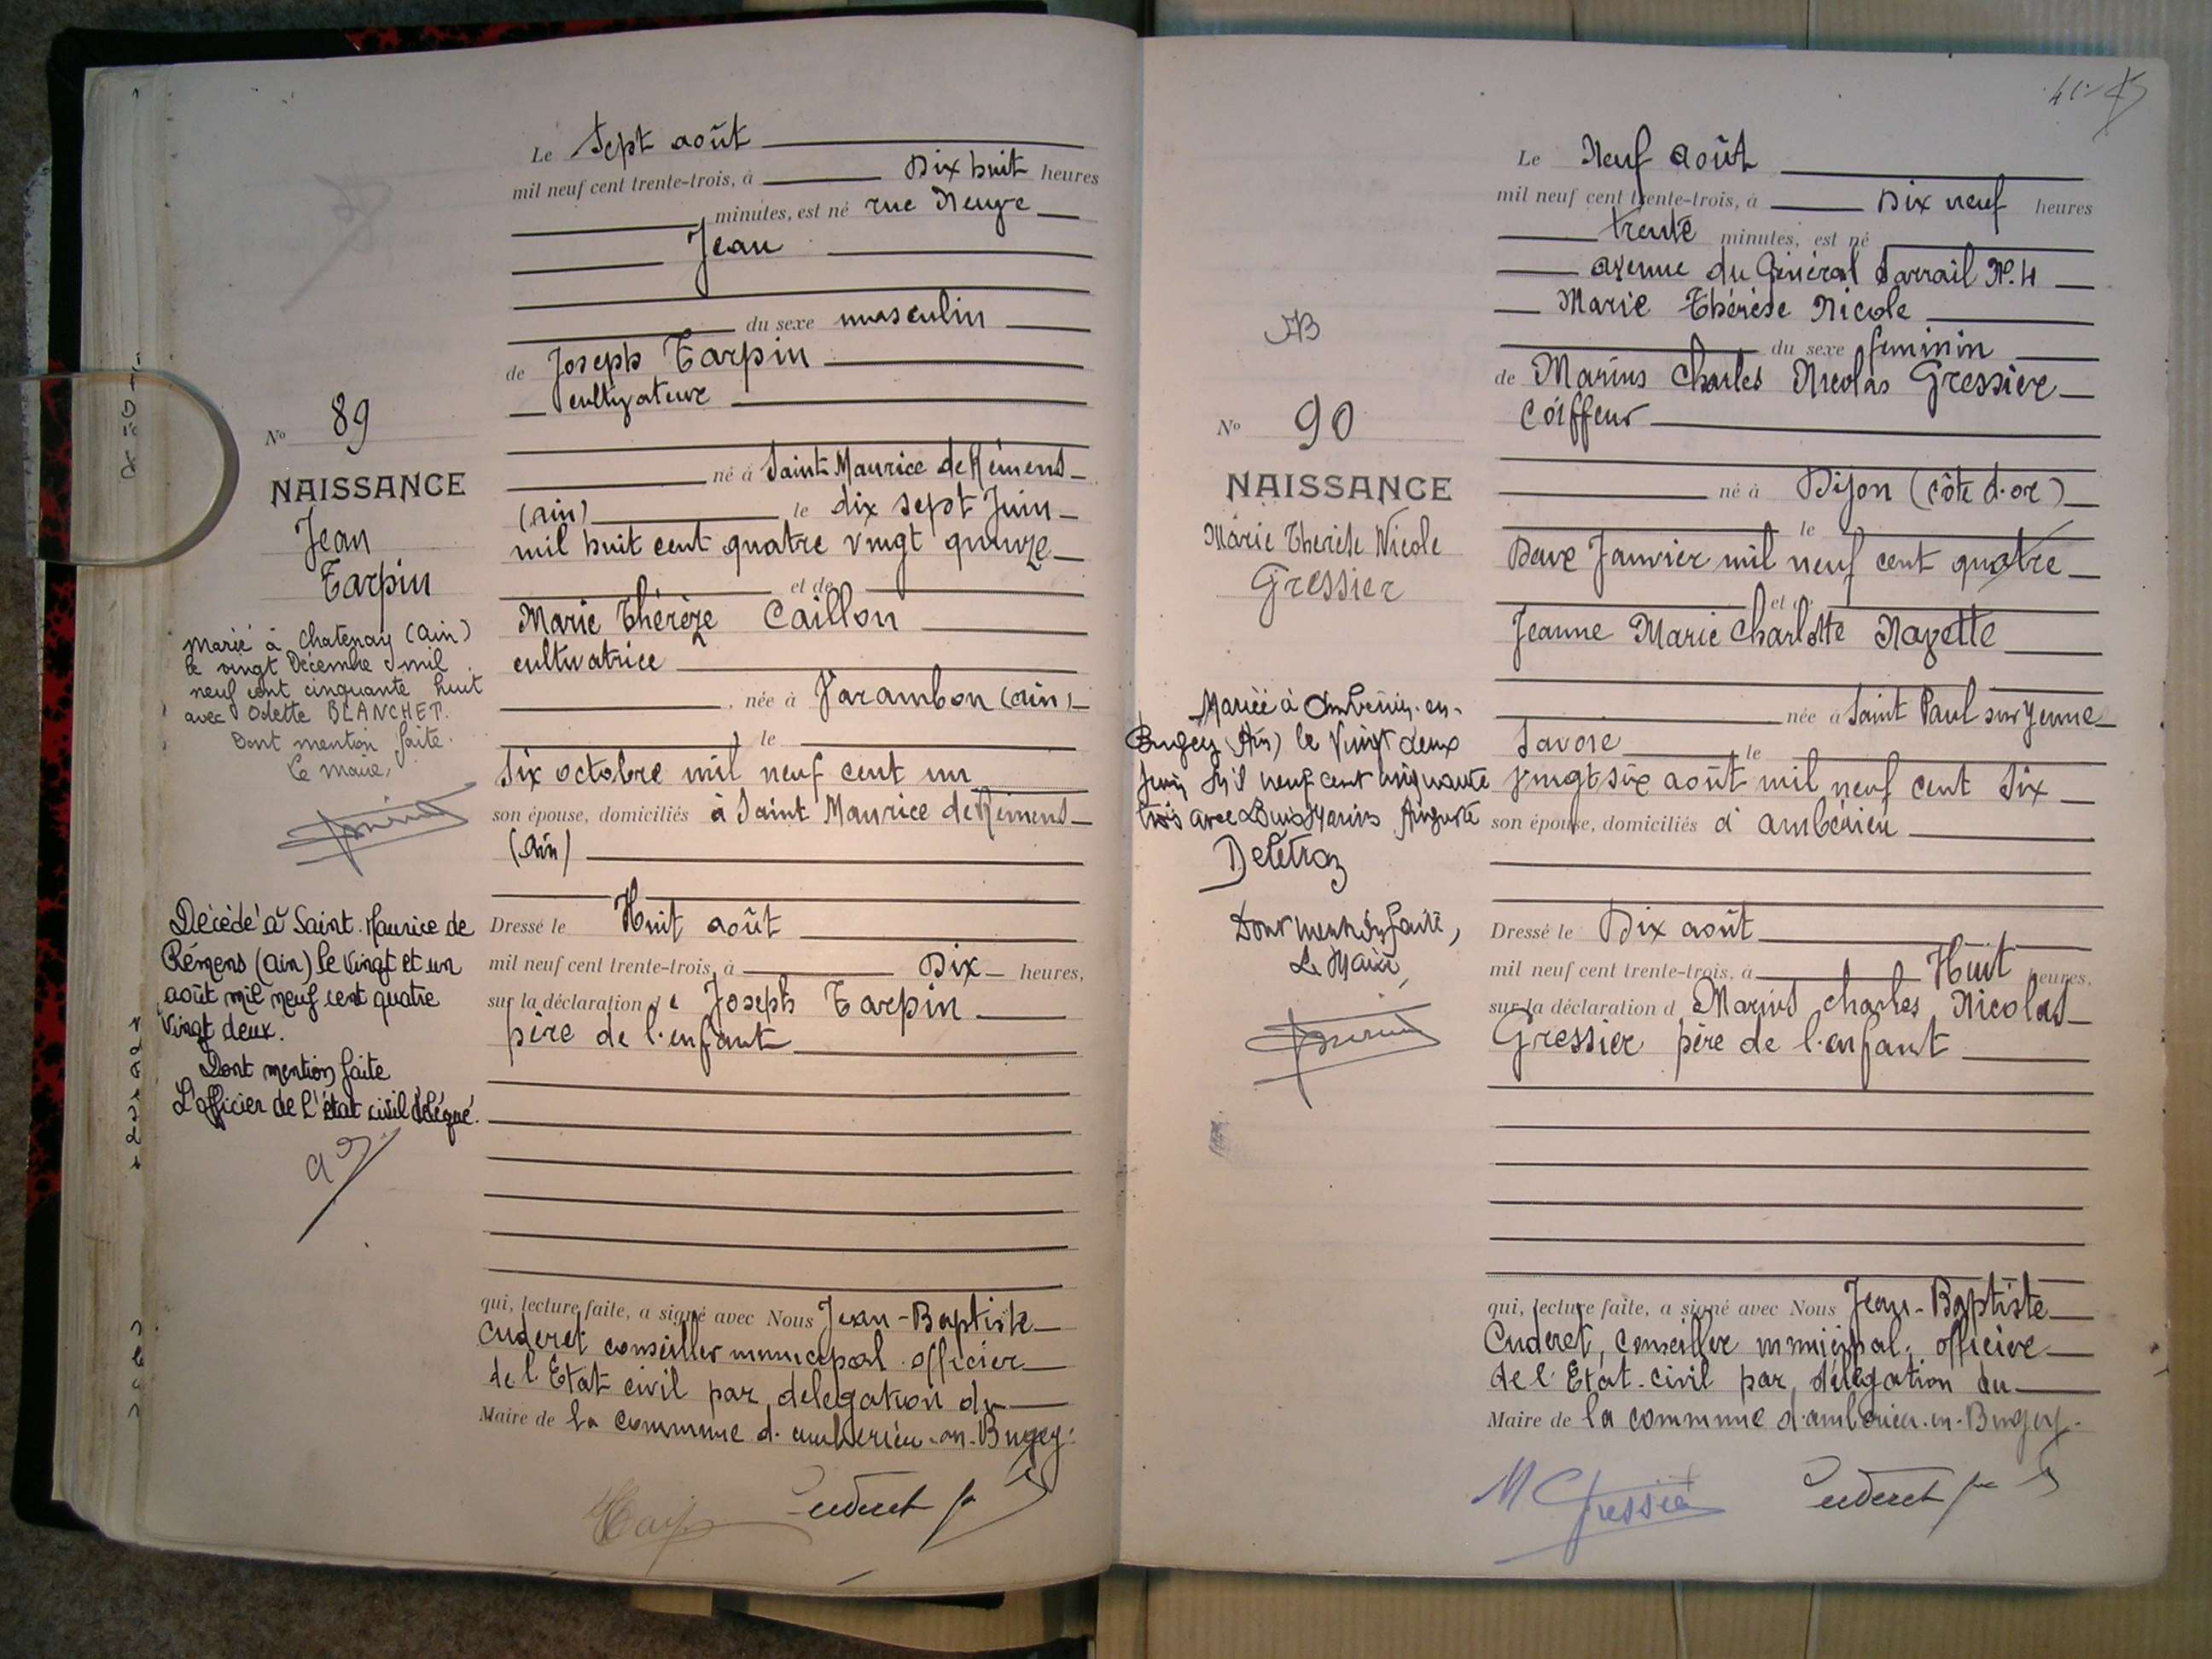 Le Sept août
mil neuf cent trente-trois, à Dix huit heures
minutes, est né rue Neuve
Jean
du sexe masculin
de Joseph Tarpin
cultivateur
né à Saint Maurice de Rémens
(Ain) le dix sept Juin
mil huit cent quatre vingt quinze
et de
Marie Thérèze Caillon
cultivatrice
, née à Varambon (Ain)
le
Six octobre mil neuf cent un
son épouse, domiciliés à Saint Maurice de Rémens
(Ain)
Dressé le Huit août
mil neuf cent trente-trois, à Dix heures,
sur la déclaration de Joseph Tarpin
père de l'enfant
qui, lecture faite, a signé avec Nous Jean-Baptiste
Cuderet conseiller municipal officier
de l'Etat civil par delegation du
Maire de la commune d'ambérieu-en-Bugey.
Cuderet
No 89
NAISSANCE
Jean
Tarpin
Marié à Chatenay (Ain)
le vingt Décembre mil
neuf cent cinquante huit
avec Odette BLANCHET.
Dont mention faite.
Le Maire,
Décédé à Saint-Maurice de
Rémens (Ain) le vingt et un
août mil neuf cent quatre
vingt deux.
Dont mention faite
L'officier de l'état civil délégué.
Le Neuf août
mil neuf cent trente-trois, à Dix neuf heures
trente minutes, est né
avenue du Général Sarrail No. 4
Marie Thérèse Nicole
du sexe feminin
de Marius Charles Nicolas Gressier
Coiffeur
né à Dijon (côte d'or)
le
Deux Janvier mil neuf cent quatre
et de
Jeanne Marie Charlotte
née à Saint Paul sur Yenne
Savoie le
vingt six août mil neuf cent Six
son épouse, domiciliés à ambérieu
Dressé le Dix août
mil neuf cent trente-trois, à Huit heures,
sur la déclaration d Marius Charles Nicolas
Gressier père de l'enfant
qui, lecture faite, a signé avec Nous Jean-Baptiste
Cuderet, Conseiller municipal, officier
de l'Etat-civil par délégation du
Maire de la commune d'ambérieu-en-Bugey.
M Gressier Cuderet
No 90
NAISSANCE
Marie Thérèse Nicole
Gressier
Mariée à Ambérieu-en-
Bugey (Ain) le Vingt deux
Juin Mil neuf cent cinquante
trois avec Louis Marius Auguste
Deletraz
Dont mention faite,
Le Maire,